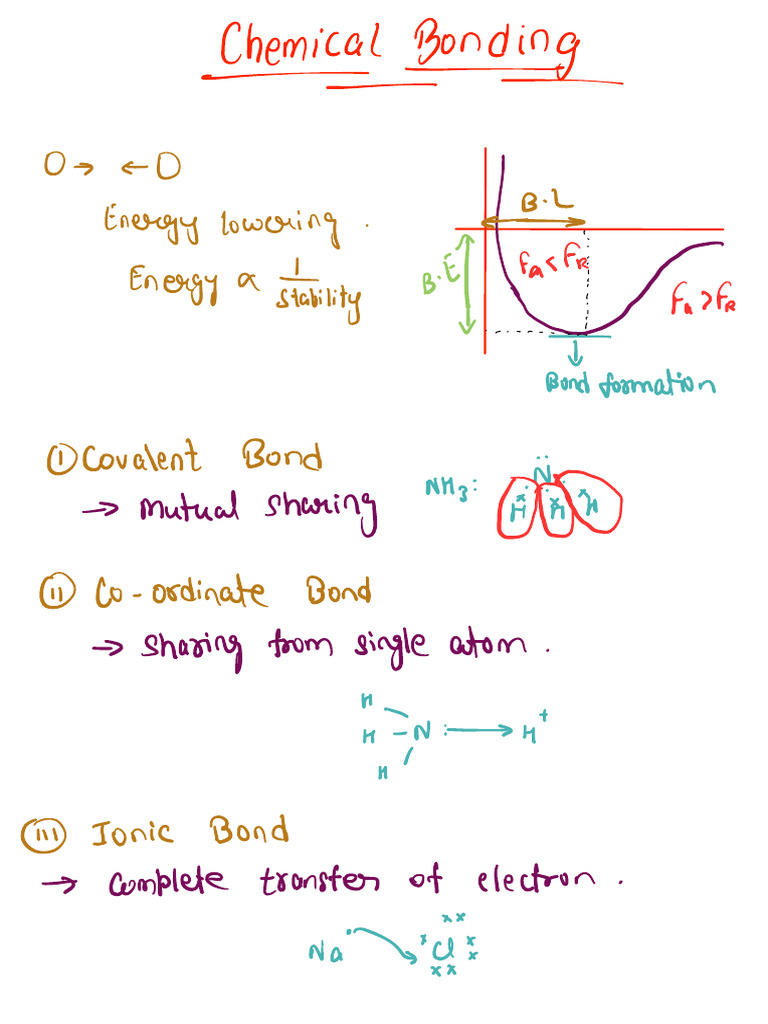 Chemical Bonding
O→ ←O
Energy lowering.
Energy ∝ 1/stability
B.L
B.E
Fa < FR
Fa > FR
Bond formation
(i) Covalent Bond
→ Mutual sharing
NH3:
N
H H H
(ii) Co-ordinate Bond
→ sharing from single atom.
H
H - N: → H+
H
(iii) Ionic Bond
→ complete transfer of electron.
Na Cl